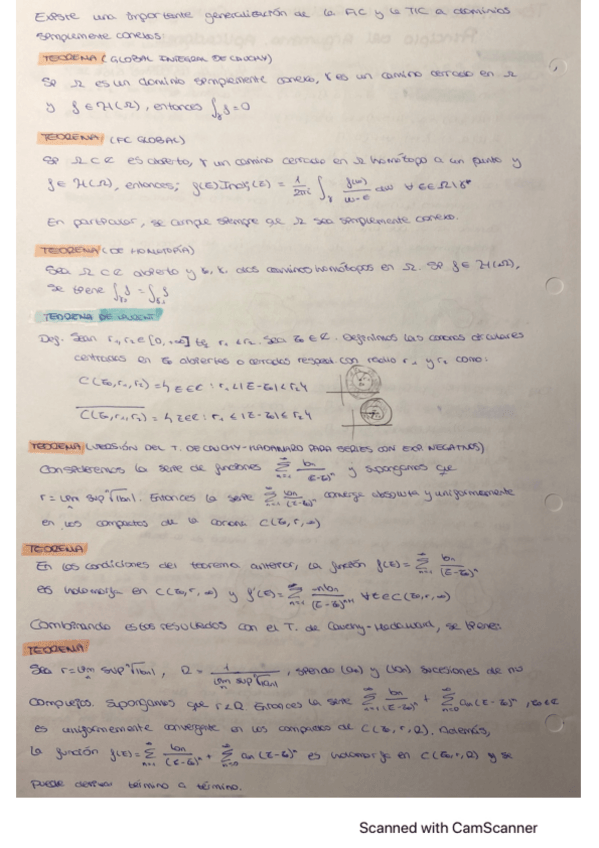 Existe una importante generalización de la FIC y la TIC a dominios
simplemente conexos.
TEOREMA (GLOBAL INTEGRAL DE CAUCHY)
Si Ω es un dominio simplemente conexo, γ es un camino cerrado en Ω
y f ∈ H(Ω), entonces ∫_γ f = 0
TEOREMA (FC GLOBAL)
Si Ω ⊂ ℂ es abierto, γ un camino cerrado en Ω homótopo a un punto y
f ∈ H(Ω), entonces; f(z) Ind_γ(z) = 1/2πi ∫_γ f(w)/(w-z) dw ∀z ∈ Ω\γ*
En particular, se cumple siempre que Ω sea simplemente conexo.
TEOREMA (DE HOMOTOPÍA)
Sea Ω ⊂ ℂ abierto y γ₀, γ₁ dos caminos homótopos en Ω. Si f ∈ H(Ω),
se tiene ∫_γ₀ f = ∫_γ₁ f
TEOREMA DE LAURENT
Def. Sean r₁, r₂ ∈ [0, +∞] tq r₁ < r₂. Sea z₀ ∈ ℂ. Definimos las coronas circulares
centradas en z₀ abiertas o cerradas respect. con radio r₁ y r₂ como:
C(z₀, r₁, r₂) = { z ∈ ℂ : r₁ < |z - z₀| < r₂ }
C(z₀, r₁, r₂) = { z ∈ ℂ : r₁ ≤ |z - z₀| ≤ r₂ }
TEOREMA (VERSIÓN DEL T. DE CAUCHY-HADAMARD PARA SERIES CON EXP. NEGATIVOS)
Consideremos la serie de funciones ∑_{n=1}^∞ bn/(z-z₀)^n y supongamos que
r = lim_n sup ⁿ√|bn|. Entonces la serie ∑_{n=1}^∞ bn/(z-z₀)^n converge absoluta y uniformemente
en los compactos de la corona C(z₀, r, ∞)
TEOREMA
En las condiciones del teorema anterior, la función f(z) = ∑_{n=1}^∞ bn/(z-z₀)^n
es holomorfa en C(z₀, r, ∞) y f'(z) = ∑_{n=1}^∞ -nbn/(z-z₀)^{n+1} ∀z ∈ C(z₀, r, ∞)
Combinando estos resultados con el T. de Cauchy-Hadamard, se tiene:
TEOREMA
Sea r = lim_n sup ⁿ√|bn|, R = 1/(lim_n sup ⁿ√|an|), siendo (an) y (bn) sucesiones de nº
complejos. Supongamos que r < R. Entonces la serie ∑_{n=1}^∞ bn/(z-z₀)^n + ∑_{n=0}^∞ an(z-z₀)^n, z₀ ∈ ℂ
es uniformemente convergente en los compactos de C(z₀, r, R). Además,
la función f(z) = ∑_{n=1}^∞ bn/(z-z₀)^n + ∑_{n=0}^∞ an(z-z₀)^n es holomorfa en C(z₀, r, R) y se
puede derivar término a término.
Scanned with CamScanner